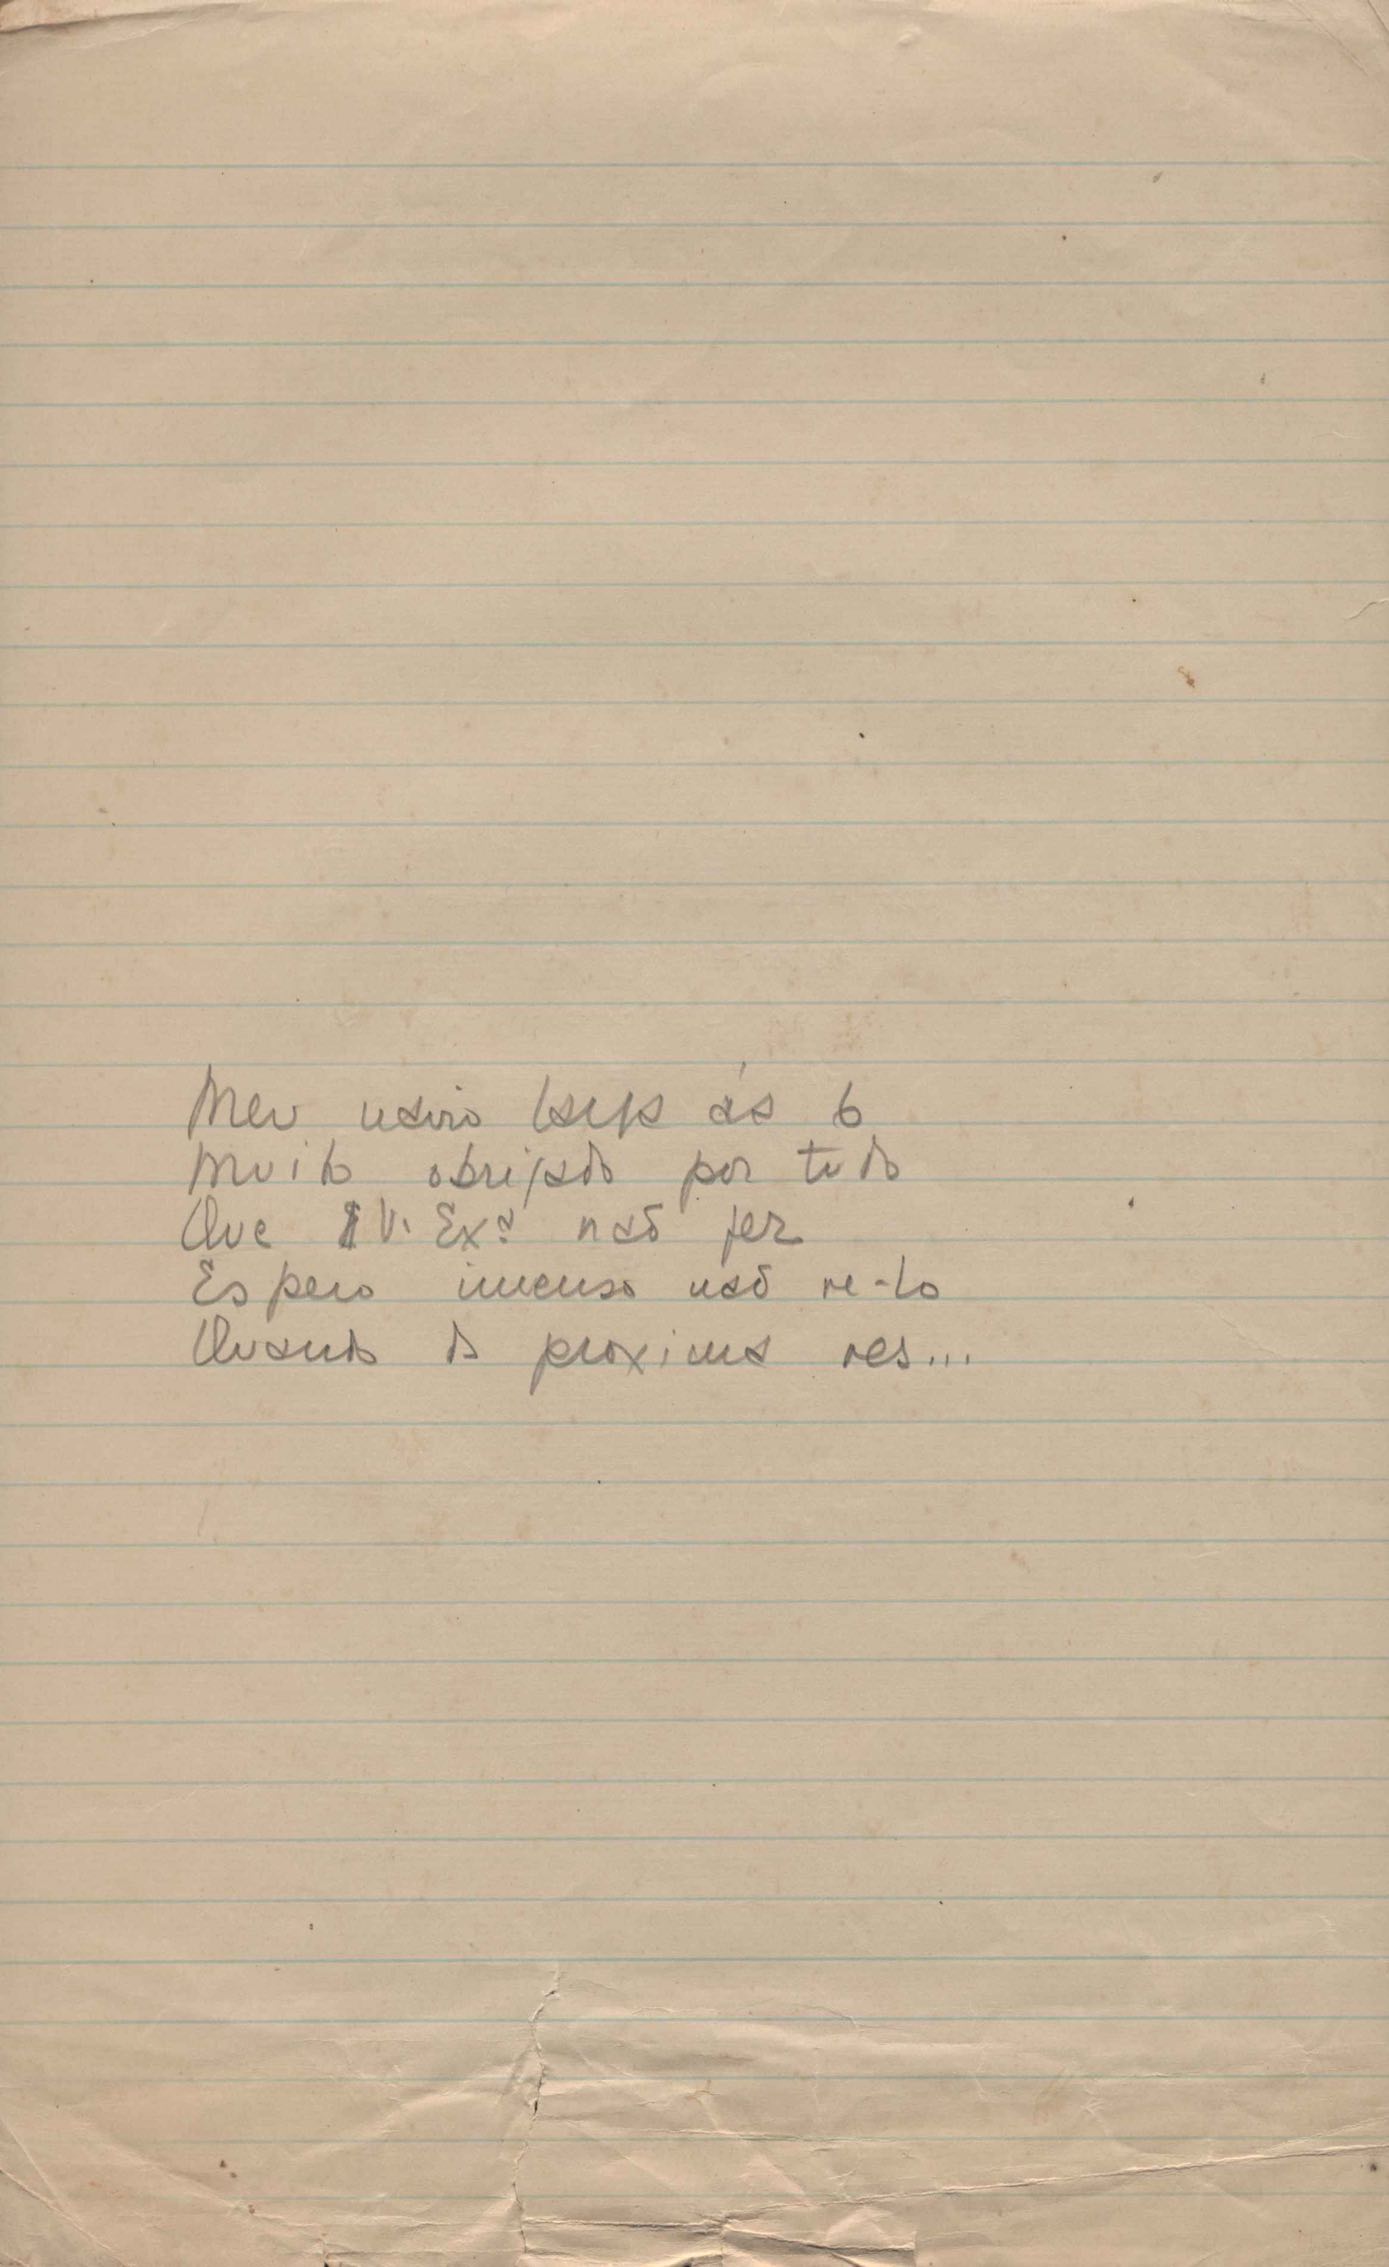 Meu navio larga ás 6
Muito obrigado por tudo
Que V. Exª não fez
Espero imenso não ve-lo
Quando da proxima ves...